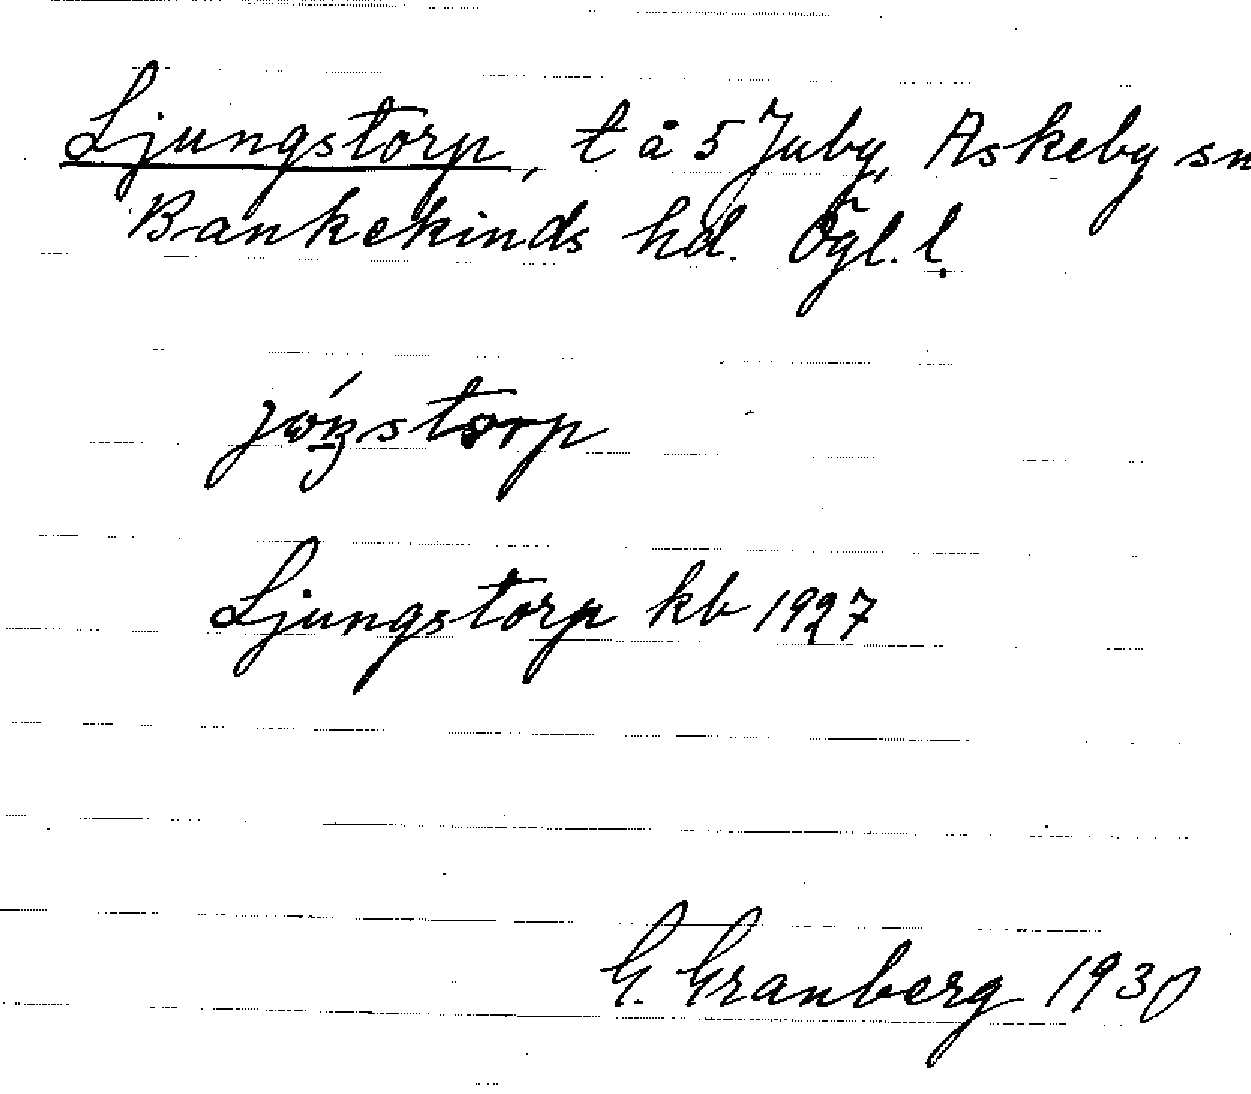 Ljungstorp, t å 5 Juby, Askeby sn
Bankekinds hd. Ögl. l.
Ljungstorp kb 1927
G. Granberg 1930